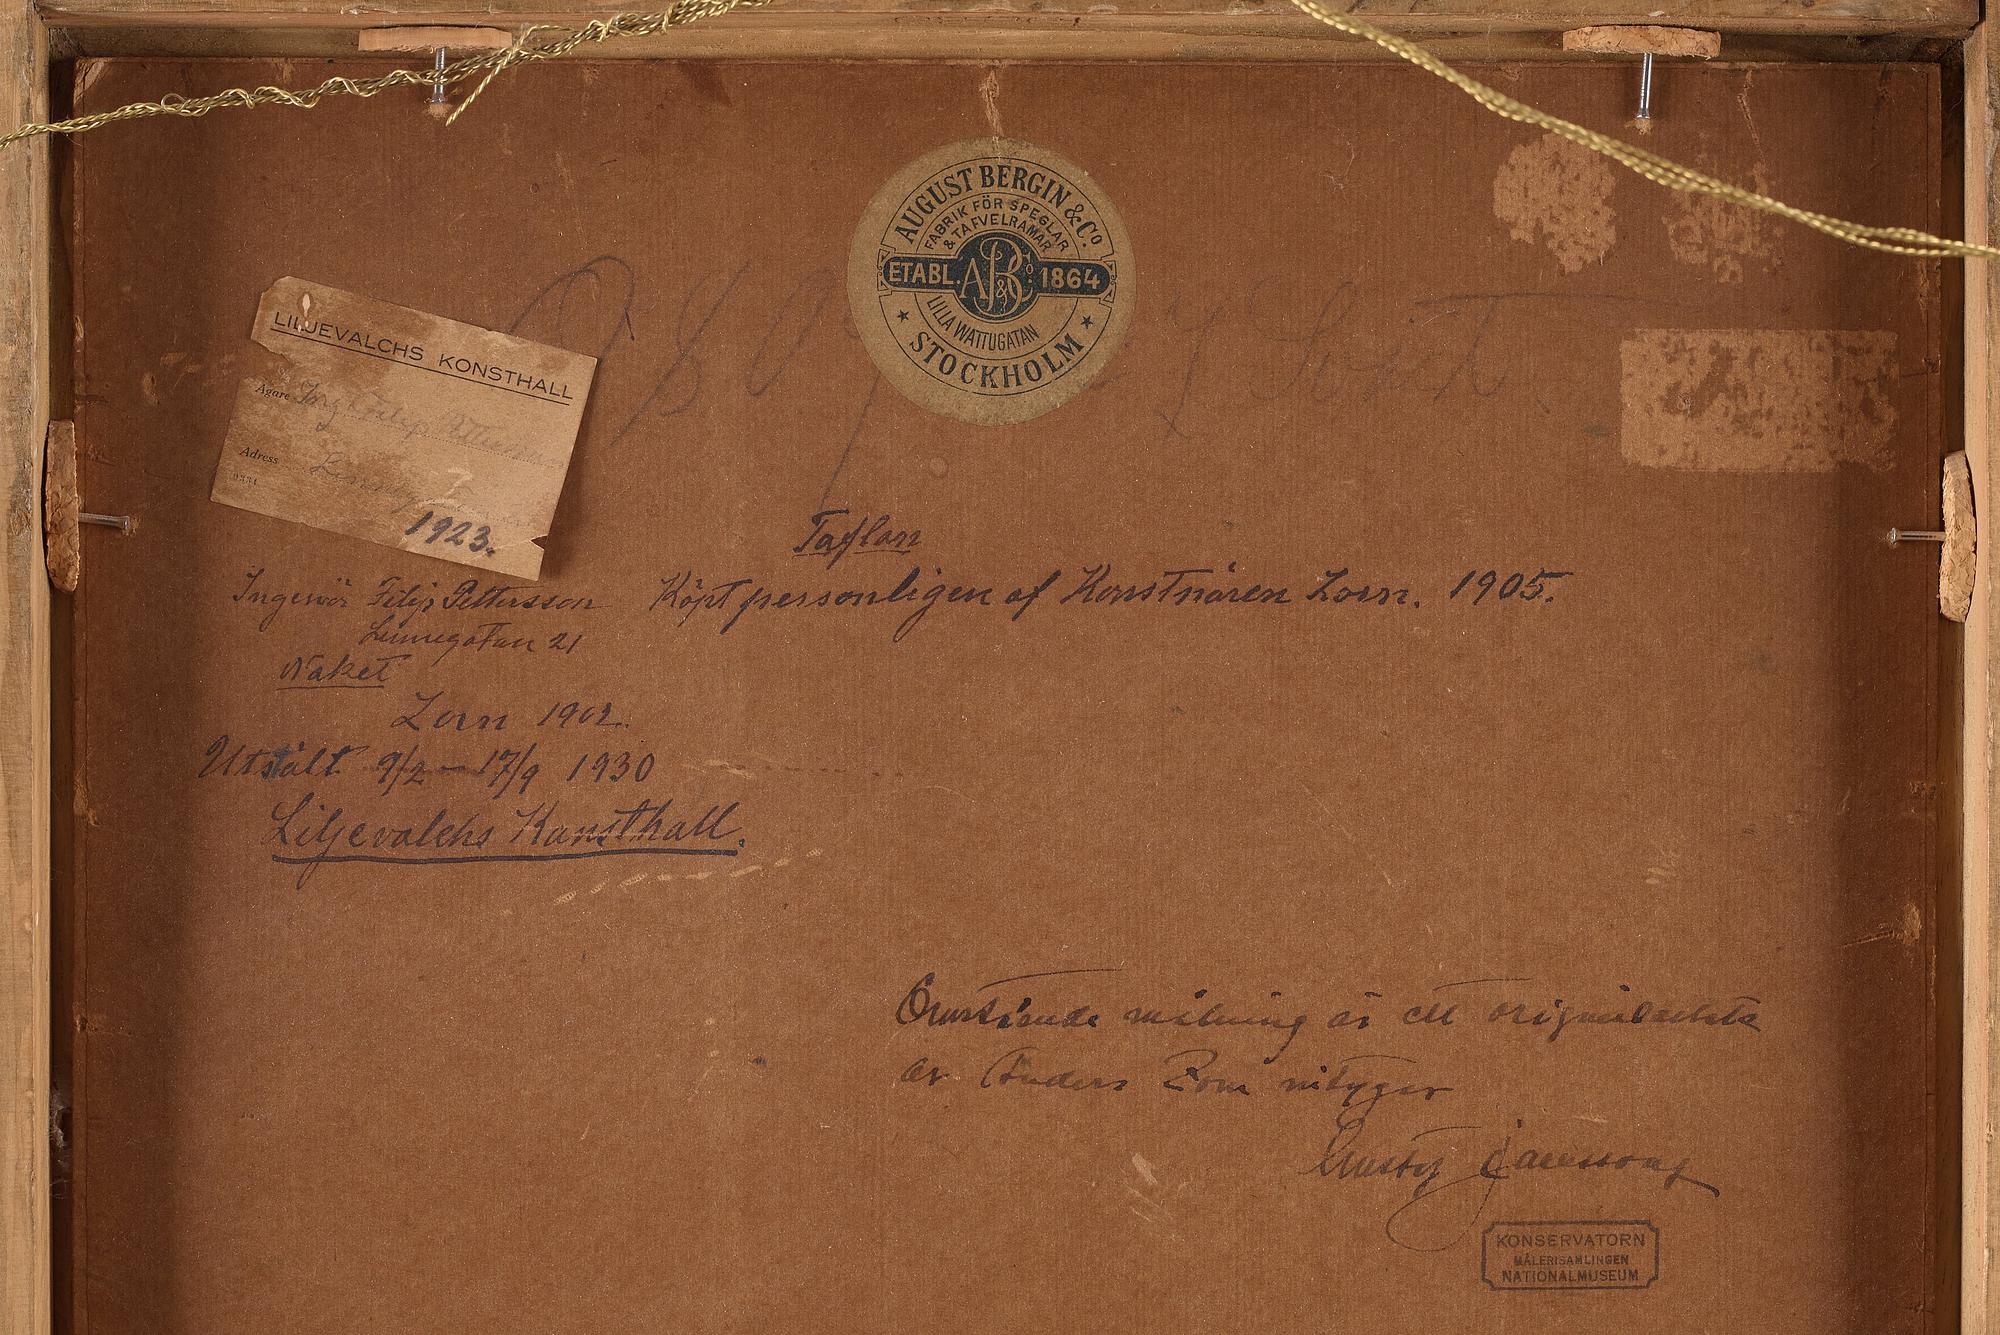 AUGUST BERGIN & Co
FABRIK FÖR SPEGLAR
& TAFVELRAMAR
ETABL. AB&Co: 1864
LILLA WATTUGATAN
★ STOCKHOLM ★
LILJEVALCHS KONSTHALL
Ägare Ing Filip Pettersson
Adress
1923.
Taflan
Köpt personligen af Konstnären Zorn. 1905.
Ingeniör Filip Pettersson
Linnegatan 21
Naket
Zorn 1902.
Utstält 9/2 – 17/9 1930
Liljevalchs Konsthall.
Omstående målning är ett originalarbete
av Anders Zorn intygar
Gustaf Jaensson
KONSERVATORN
MÅLERISAMLINGEN
NATIONALMUSEUM